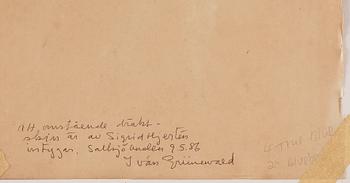 att omstående träkt-
skiss är av Sigrid Hjertén
intygar. Saltsjöbaden 9.5.86
Iván Grünewald